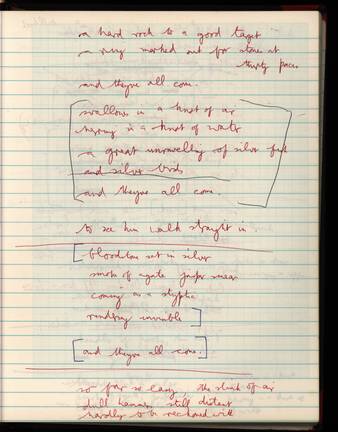 a hard rock to a good target
a very marked out for stone at
thirty paces
and theyre all come.
swallows in a knot of air
herring in a knot of water
a great unswelling of silver fish
and silver birds
and theyre all come.
to see him walk straight in.
bloodstone set in silver
smoke of agate jasper smear
coming as a styptic
rendering invisible
and theyre all come.
so far so easy, the shriek of air
still distant
hardly to be reckoned with